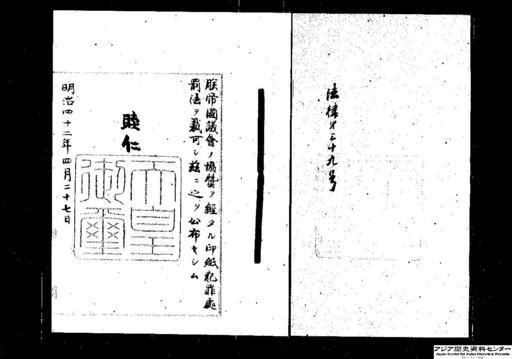 法律第三十九号
朕帝國議會ノ協賛ヲ經タル印紙犯罪處
罰法ヲ裁可シ茲ニ之ヲ公布セシム
睦仁
天皇御璽
明治四十二年四月二十七日
アジア歴史資料センター
Japan Center for Asian Historical Records